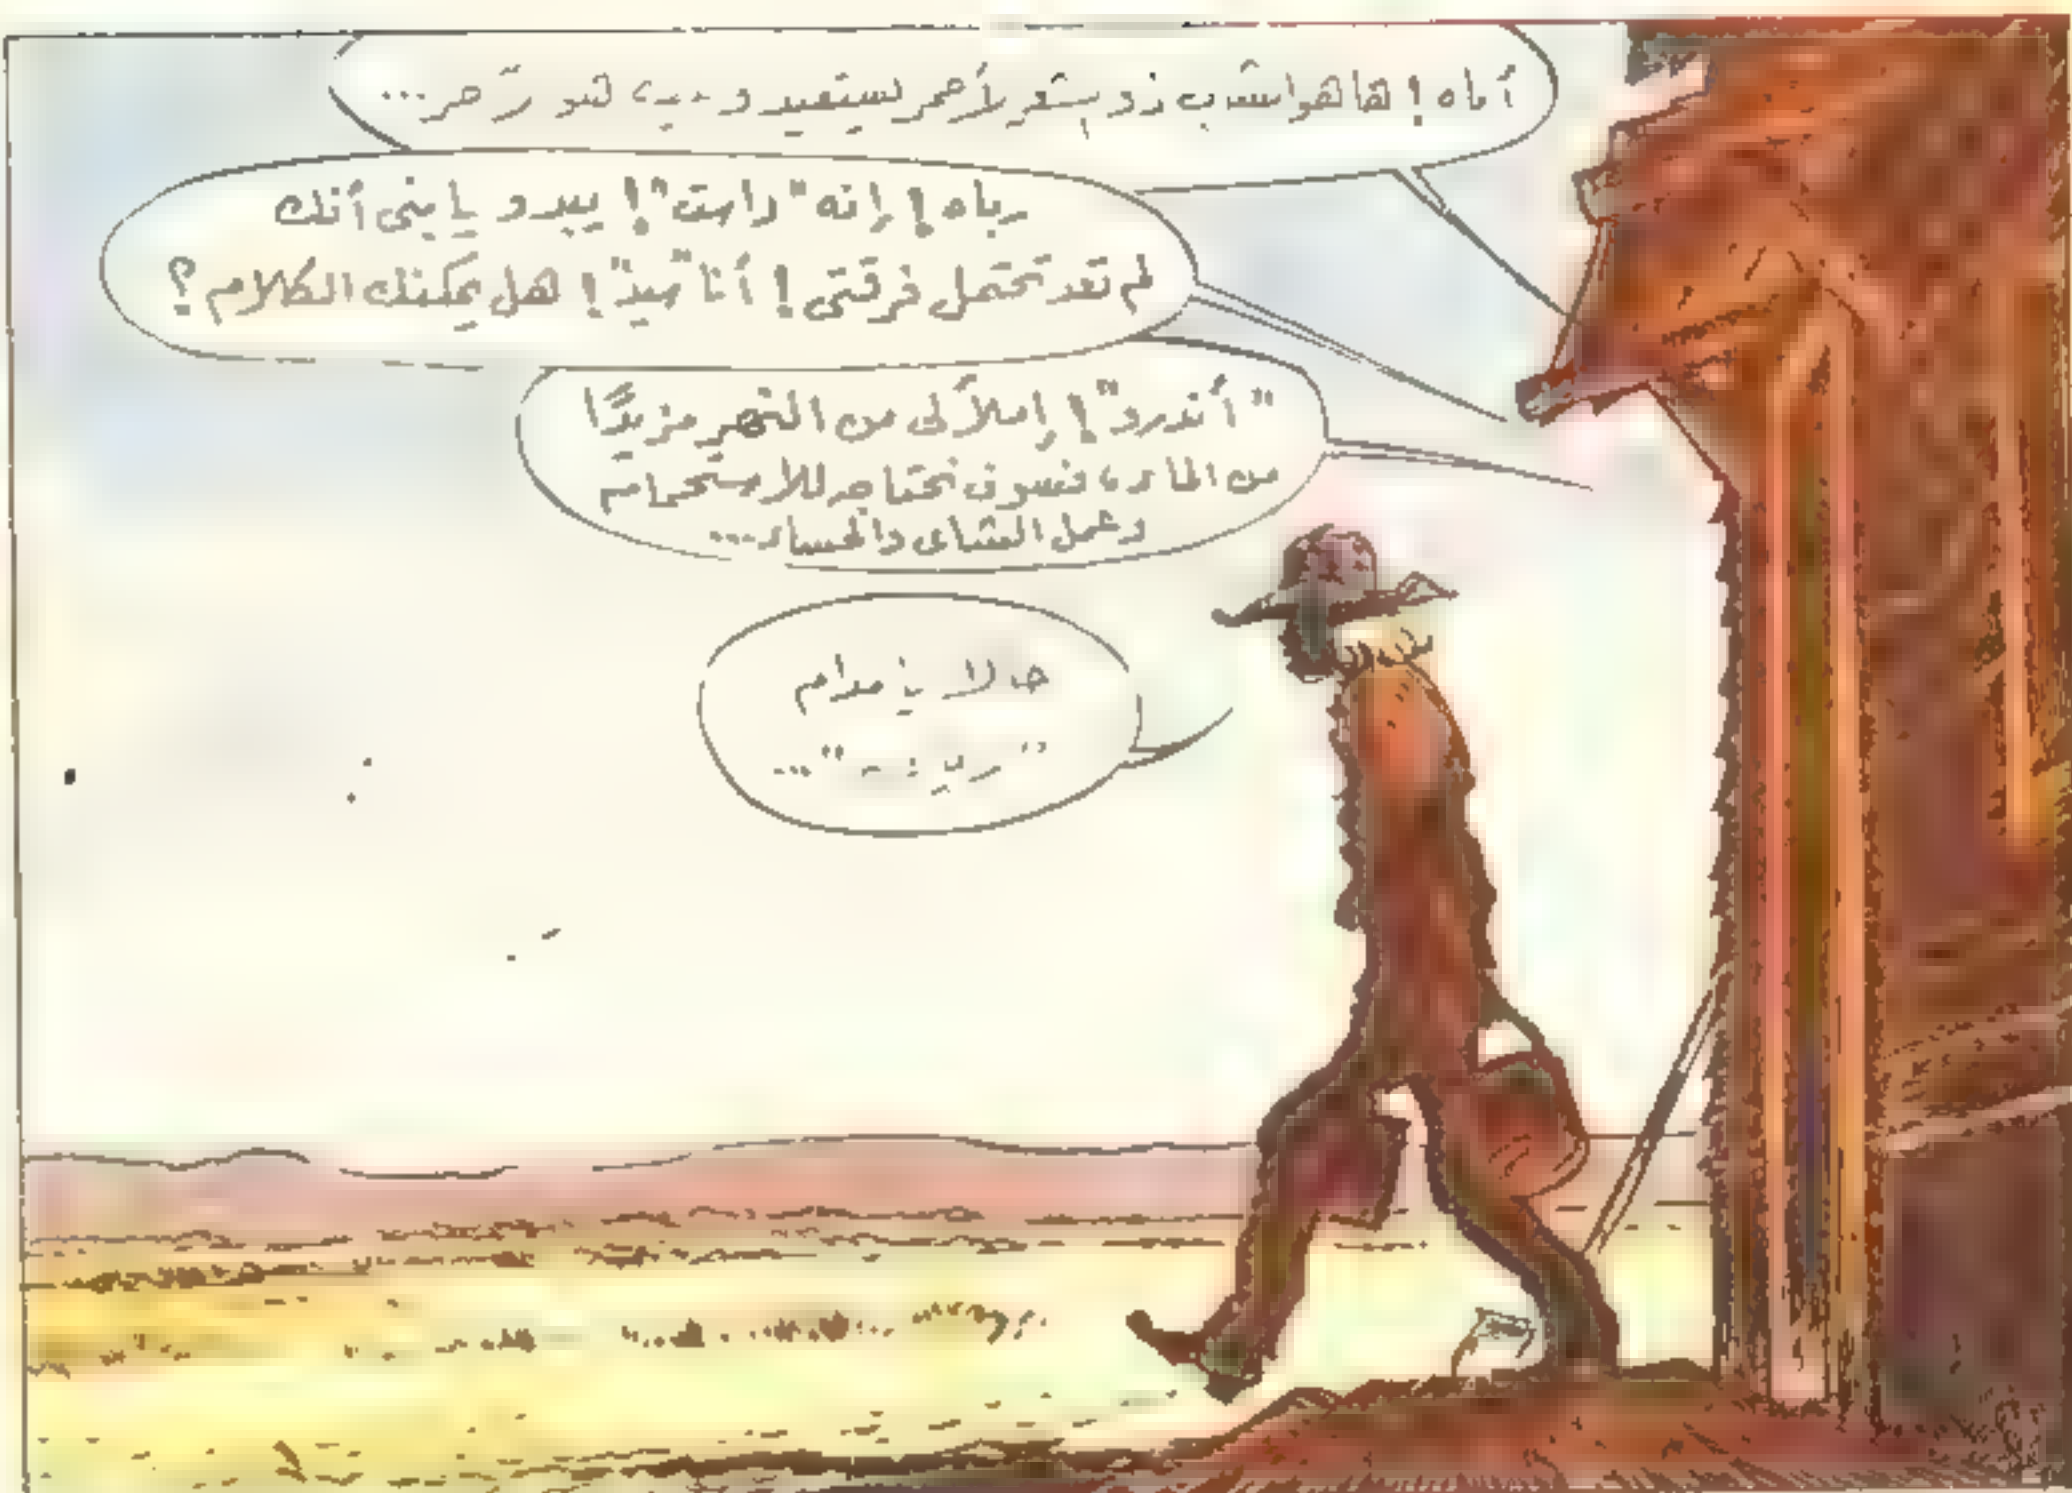 أماه! ها هو الشاب ذو الشعر الأحمر يستعيد وعيه
رباه! إنه "راست"! يبدو يا بنى أنك
لم تعد تحتمل فرقتى! أنا "ميد"! هل يمكنك الكلام؟
"أندرو"! إملأ لى من النهر مزيدًا
من الماء، فسوف نحتاجه للاستحمام
وعمل الشاى والحساء...
حالا يا مدام